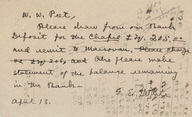 W. W. Peet,
Please draw from our Bank
Deposit for the Chapel £Tq. 205.
and remit to Marsovan, Please charge
and also please make
statement of the balance remaining
in the Bank.
April 13.